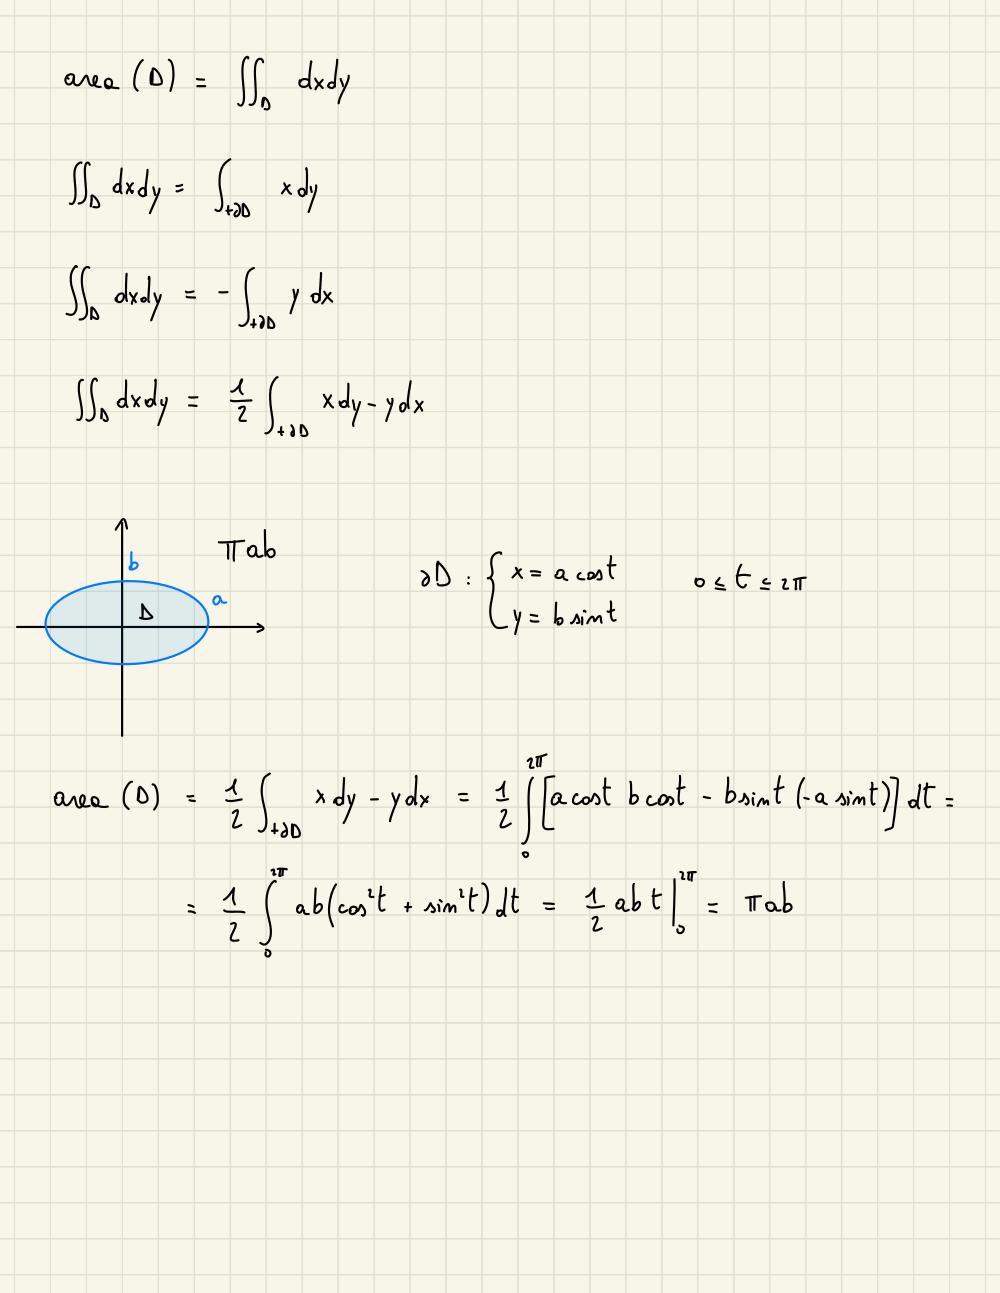 area (D) = ∬_D dxdy
∬_D dxdy = ∫_{+∂D} x dy
∬_D dxdy = - ∫_{+∂D} y dx
∬_D dxdy = 1/2 ∫_{+∂D} x dy - y dx
πab
b
a
D
∂D : { x = a cos t
y = b sin t
0 ≤ t ≤ 2π
area (D) = 1/2 ∫_{+∂D} x dy - y dx = 1/2 ∫_0^{2π} [a cos t b cos t - b sin t (-a sin t)] dt =
= 1/2 ∫_0^{2π} ab (cos²t + sin²t) dt = 1/2 ab t |_0^{2π} = πab